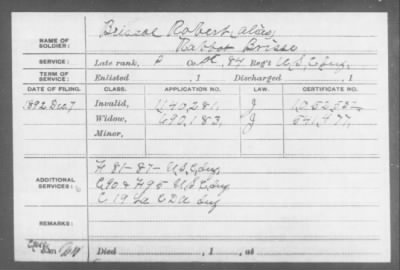 NAME OF SOLDIER: Briscoe Robert, alias,
Rabbot Brisse
SERVICE: Late rank, P Co. H, 84 Reg't U.S.C. Inf.
TERM OF SERVICE: Enlisted , 1 Discharged , 1
DATE OF FILING. CLASS. APPLICATION NO. LAW. CERTIFICATE NO.
1892 Dec. 7 Invalid, 1140,281, J
Widow, 690,183, J 541,477,
Minor,
ADDITIONAL SERVICES: H 81-87- U.S.C. Inf
C 19
REMARKS:
Died , 1 , at